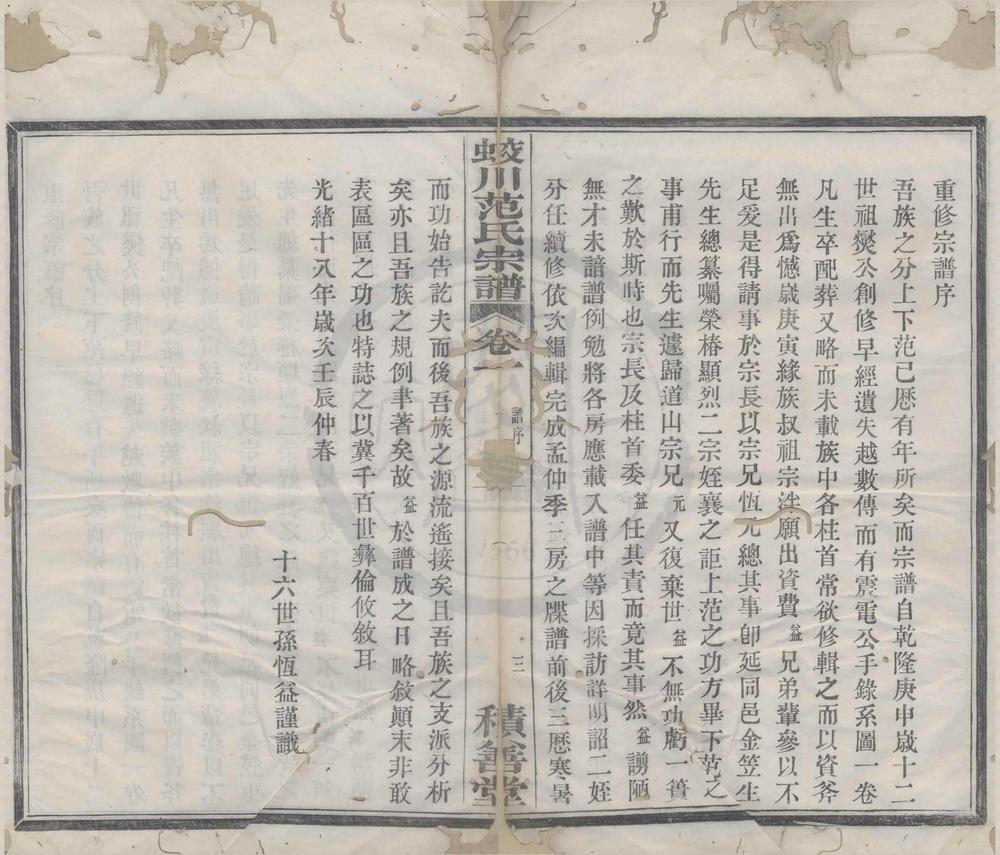 重修宗譜序
吾族之分上下范已厯有年所矣而宗譜自乾隆庚申歲十二
世祖爕公創修早經遺失越數傳而有震電公手錄系圖一卷
凡生卒配葬又略而未載族中各柱首常欲修輯之而以資斧
無出爲憾歲庚寅緣族叔祖宗泩願出資費益兄弟輩參以不
足爰是得請事於宗長以宗兄恆元總其事卽延同邑金笠生
先生總纂囑榮椿顯烈二宗姪襄之詎上范之功方畢下范之
事甫行而先生遽歸道山宗兄元又復棄世益不無功虧一簣
之歎於斯時也宗長及柱首委益任其責而竟其事然益謭陋
無才未諳譜例勉將各房應載入譜中等因採訪詳明詔二姪
分任續修依次編輯完成孟仲季三房之牒譜前後三厯寒暑
蛟川范氏宗譜
卷一
譜序
三
積善堂
而功始告訖夫而後吾族之源流遙接矣且吾族之支派分析
矣亦且吾族之規例聿著矣故益於譜成之日略敘顛末非敢
表區區之功也特誌之以冀千百世彝倫攸敘耳
光緒十八年歲次壬辰仲春
十六世孫恆益謹識